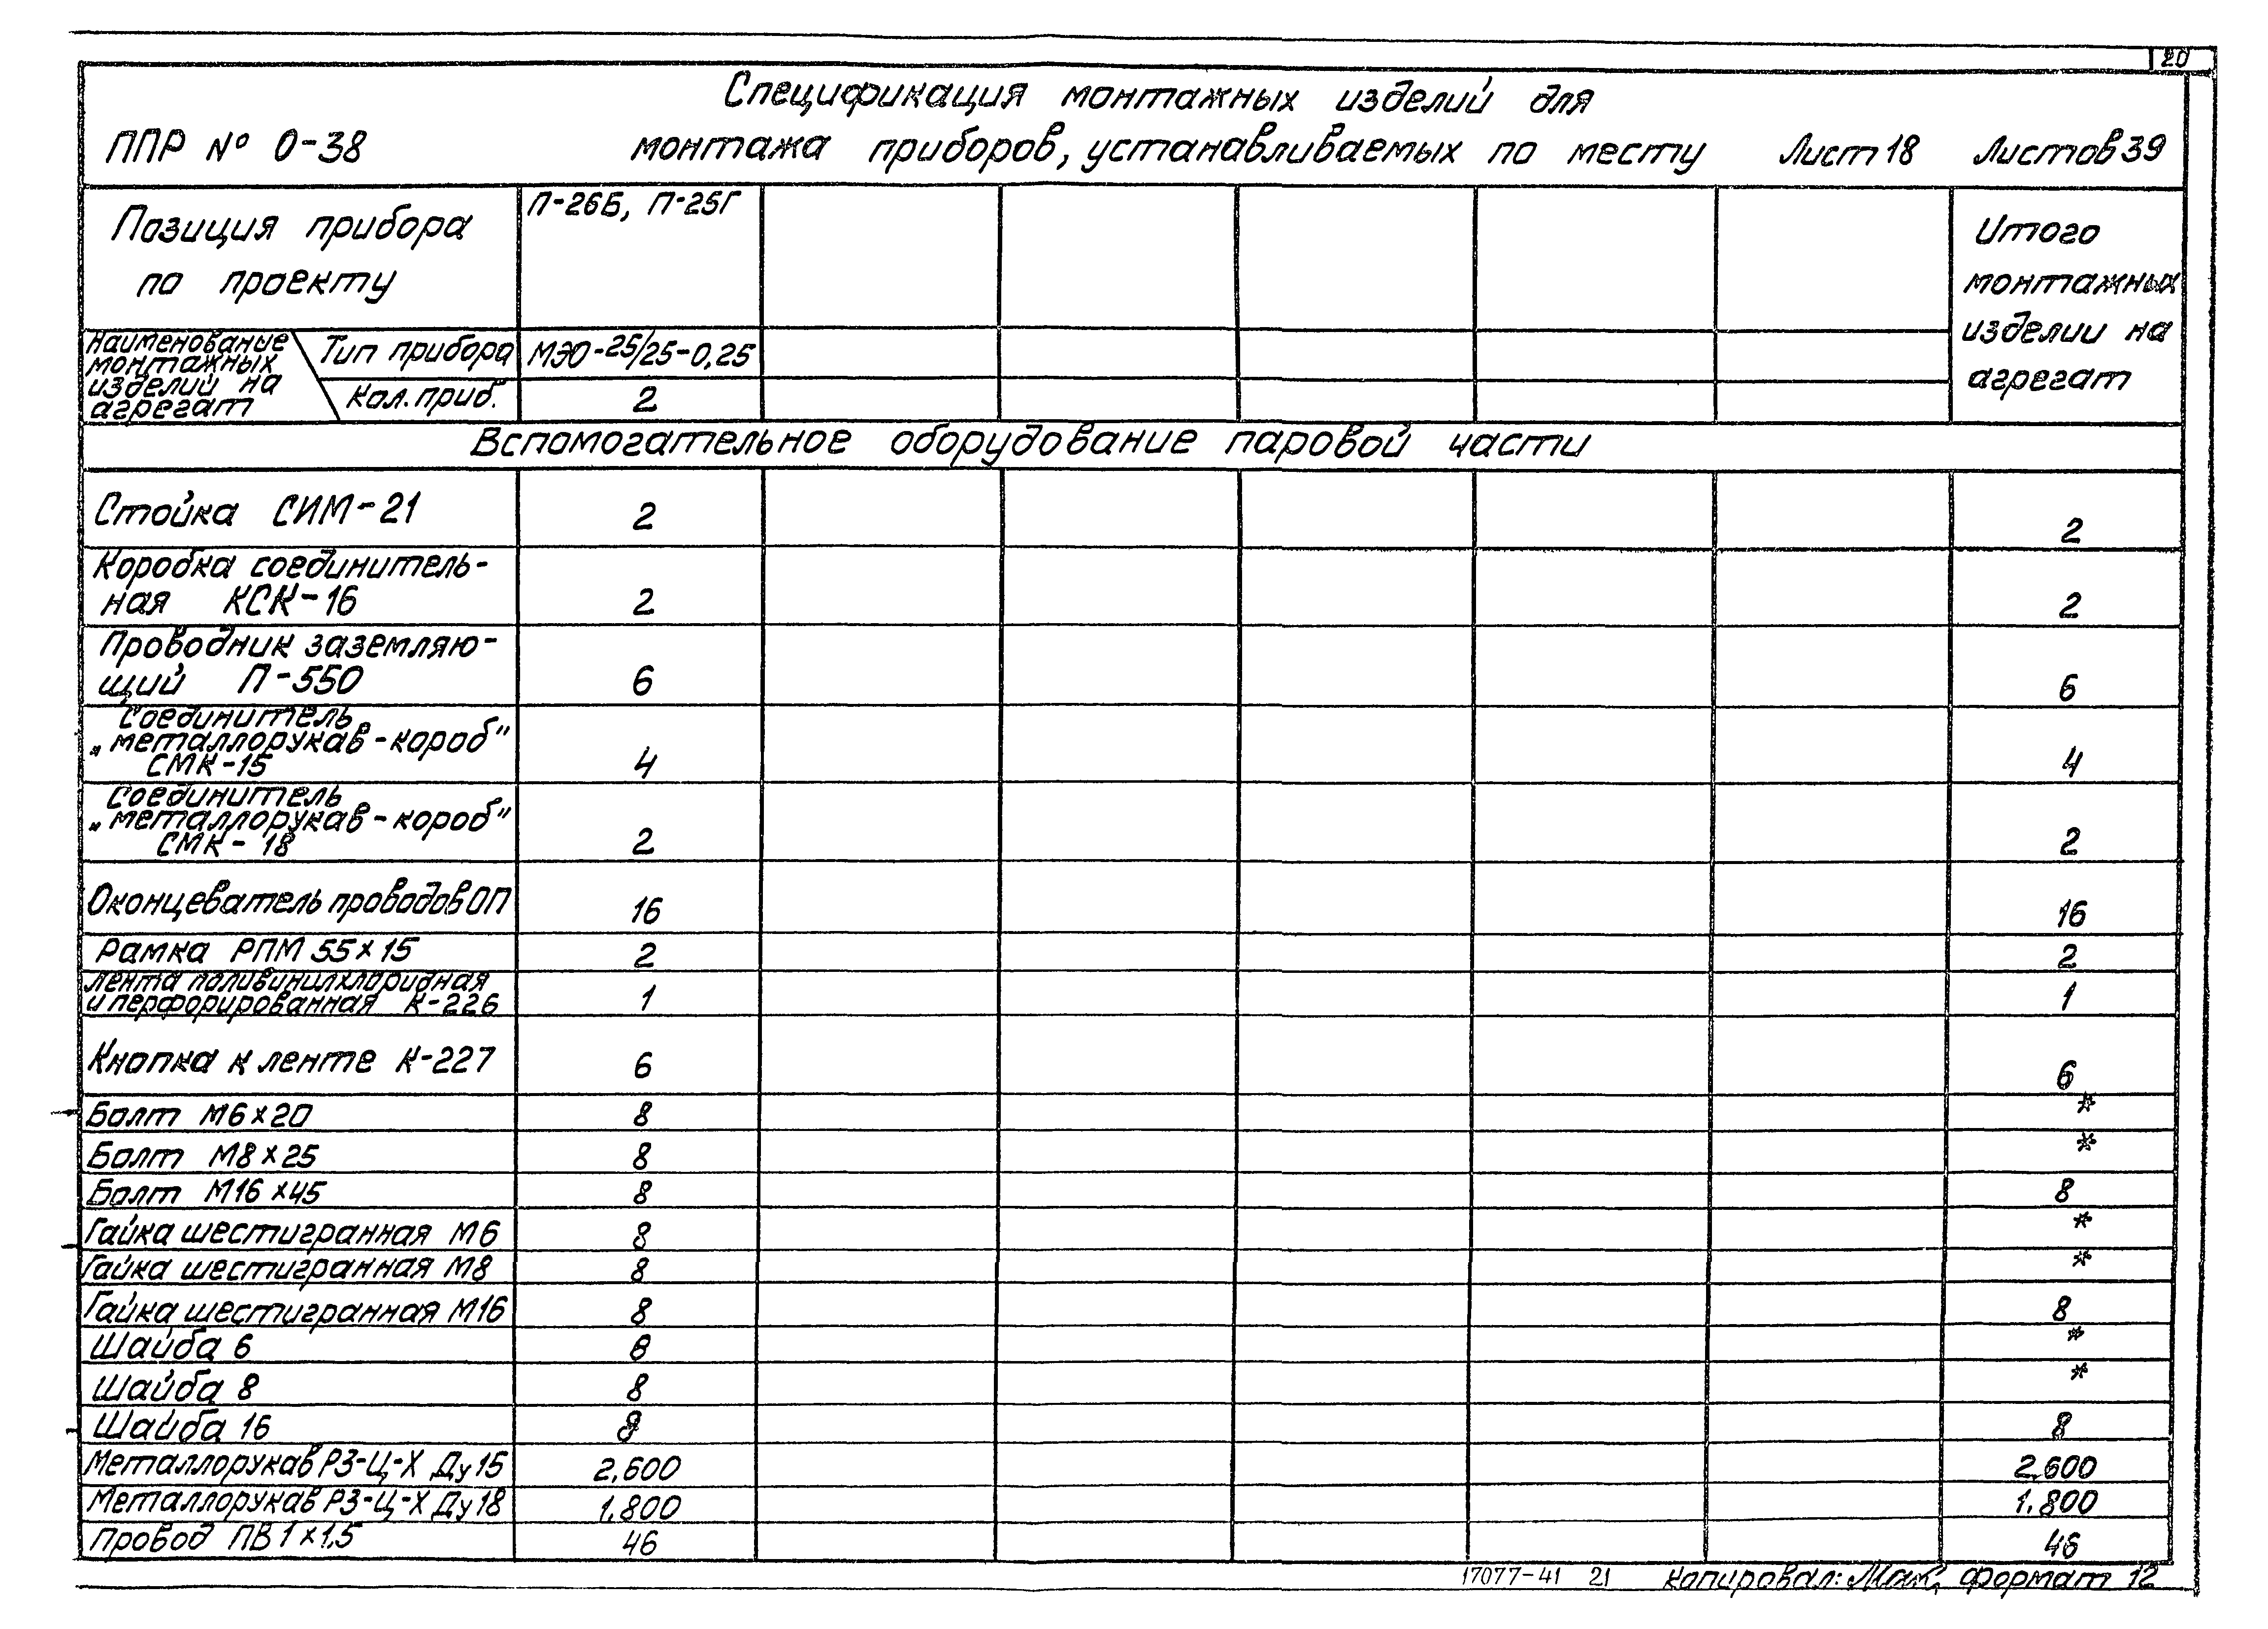 20
Спецификация монтажных изделий для
ППР № 0-38 монтажа приборов, устанавливаемых по месту Лист 18 Листов 39
Позиция прибора
по проекту
П-26Б, П-25Г
Итого
монтажных
изделии на
агрегат
Наименование
монтажных
изделий на
агрегат
Тип прибора МЭО-25/25-0,25
Кол. приб. 2
Вспомогательное оборудование паровой части
Стойка СИМ-21 2 2
Коробка соединитель-
ная КСК-16 2 2
Проводник заземляю-
щий П-550 6 6
Соединитель
„металлорукав-короб"
СМК-15 4 4
Соединитель
„металлорукав-короб"
СМК-18 2 2
Оконцеватель проводов ОП 16 16
Рамка РПМ 55×15 2 2
Лента поливинилхлоридная
и перфорированная К-226 1 1
Кнопка к ленте К-227 6 6
Болт М6×20 8 *
Болт М8×25 8 *
Болт М16×45 8 8
Гайка шестигранная М6 8 *
Гайка шестигранная М8 8 *
Гайка шестигранная М16 8 8
Шайба 6 8 *
Шайба 8 8 *
Шайба 16 8 8
Металлорукав РЗ-Ц-Х Ду15 2,600 2.600
Металлорукав РЗ-Ц-Х Ду18 1.800 1.800
Провод ПВ 1×1,5 46 46
17077-41 21 Копировал: формат 12